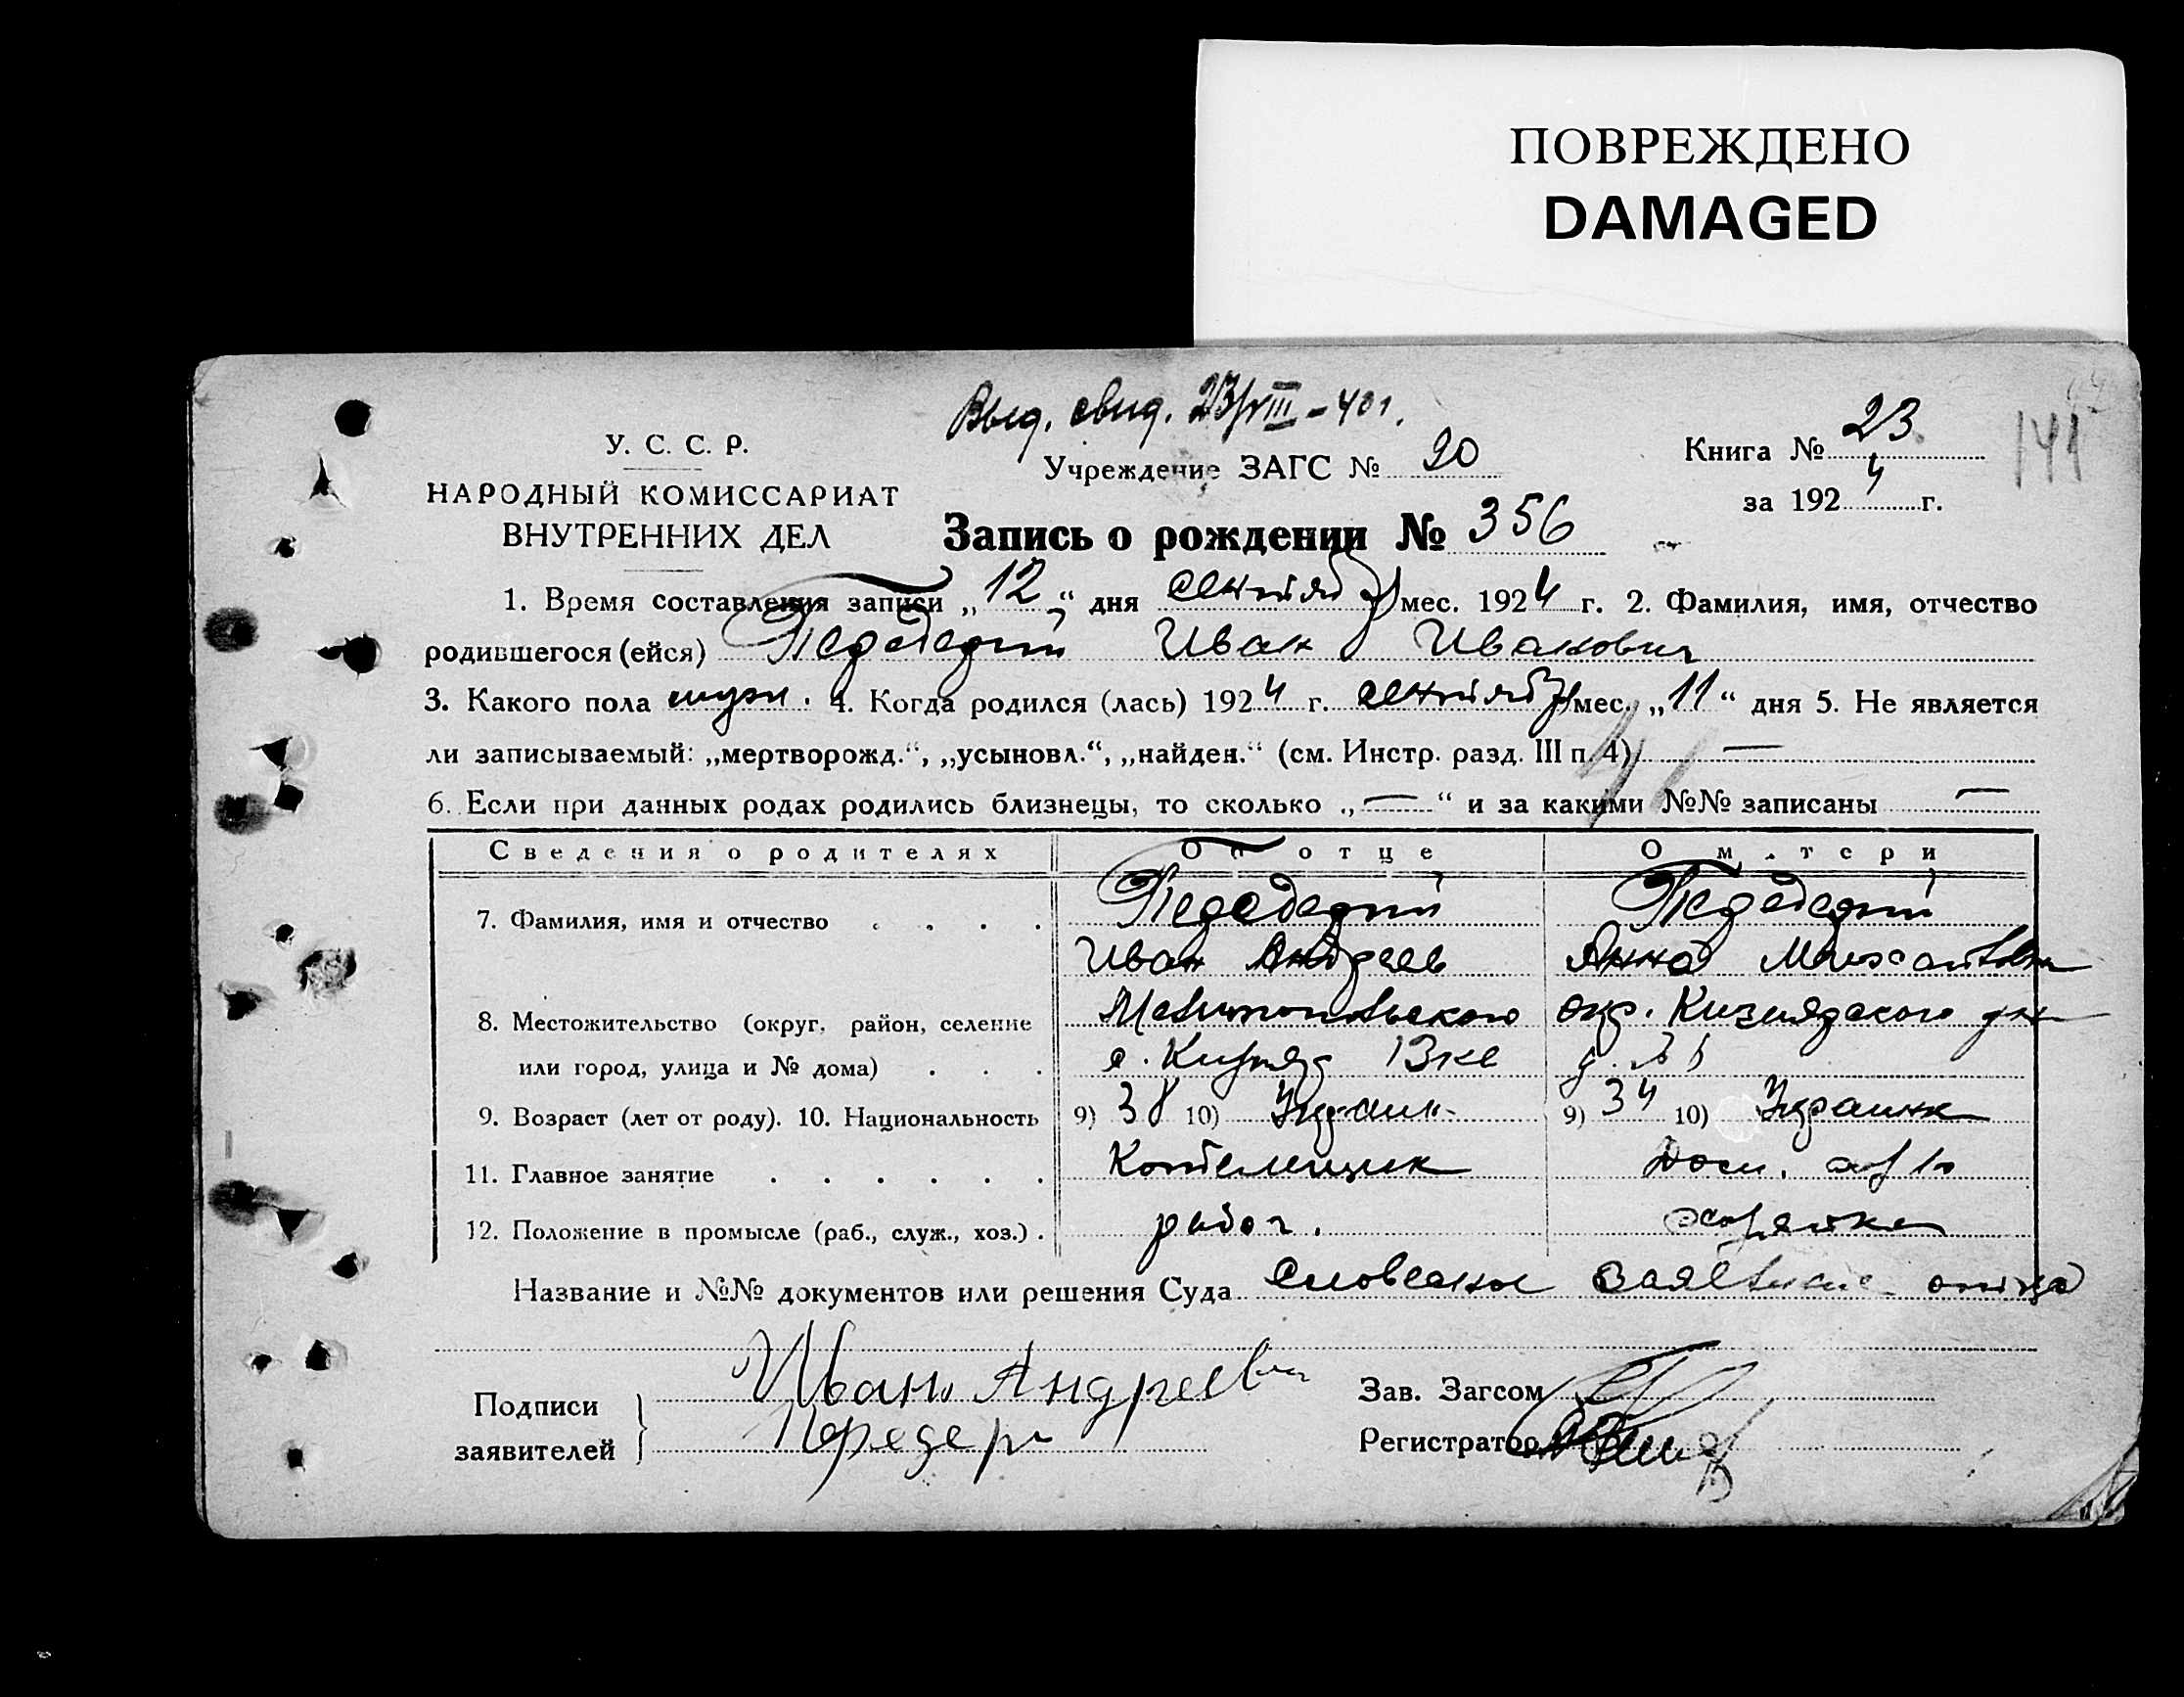 ПОВРЕЖДЕНО
DAMAGED
Выд. свид. 23/VIII-40г.
У. С. С. Р.
НАРОДНЫЙ КОМИССАРИАТ
ВНУТРЕННИХ ДЕЛ
Учреждение ЗАГС № 20
Книга № 23
141
за 1924 г.
Запись о рождении № 356
1. Время составления записи „12“ дня сентября мес. 1924 г. 2. Фамилия, имя, отчество
родившегося (ейся) Передерий Иван Иванович
3. Какого пола муж. 4. Когда родился (лась) 1924 г. сентября мес. „11“ дня 5. Не является
ли записываемый: „мертворожд.“, „усыновл.“, „найден.“ (см. Инстр. разд. III п. 4) —
6. Если при данных родах родились близнецы, то сколько „—“ и за какими №№ записаны —
Сведения о родителях Об отце О матери
7. Фамилия, имя и отчество . . . . Передерий Передерий
Иван Андреев Анна Михайловна
8. Местожительство (округ, район, селение Мелитопольского окр. Кизиярского
или город, улица и № дома) . . . с. Кизияр
9. Возраст (лет от роду). 10. Национальность 9) 38 10) Украин. 9) 34 10) Украинк
11. Главное занятие . . . . . . Дом.
12. Положение в промысле (раб., служ., хоз.) . рабоч. хозяйка
Название и №№ документов или решения Суда Словесное заявление отца
Подписи заявителей } Иван Андреевич
Передери
Зав. Загсом
Регистратор